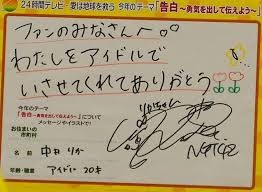 24時間テレビ・愛は地球を救う 今年のテーマ「告白～勇気を出して伝えよう～」
ファンのみなさんへ。
わたしをアイドルで
いさせてくれてありがとう
今年のテーマ
「告白～勇気を出して伝えよう～」について
メッセージやイラストで!
お住まいの
市町村
名前 中井りか
年齢・職業 アイドル 20才
りかちゃん
NGT48